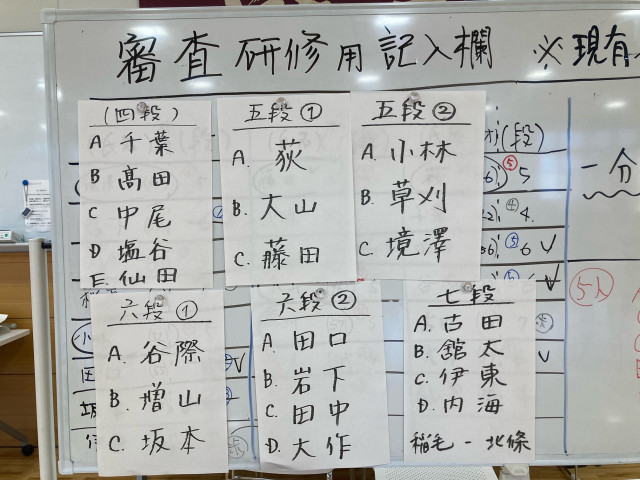 審査研修用記入欄 ※現有
(四段)
A 千葉
B 髙田
C 中尾
D 塩谷
E. 仙田
五段 ①
A. 荻
B. 大山
C. 藤田
五段 ②
A. 小林
B. 草刈
C. 境澤
六段 ①
A. 谷際
B. 増山
C. 坂本
六段 ②
A. 田口
B. 岩下
C. 田中
D. 大作
七段
A. 古田
B. 舘太
C. 伊東
D. 内海
稲毛 - 北條
(段)
⑤ 5
④ 4.
⑤ 6
一分
5人